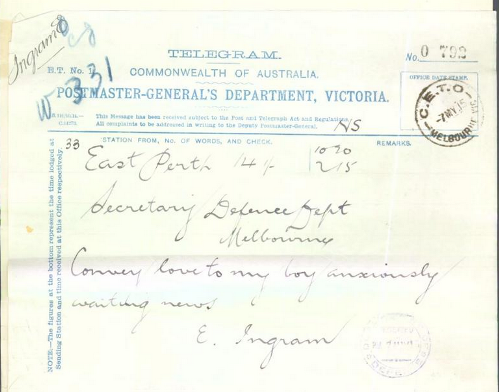 Ingram
W 331
TELEGRAM.
No. 0 792
B.T. No. 1.
COMMONWEALTH OF AUSTRALIA.
OFFICE DATE STAMP.
POSTMASTER-GENERAL'S DEPARTMENT, VICTORIA.
C.E.T.O.
MELBOURNE
This Message has been received subject to the Post and Telegraph Act and Regulations.
All complaints to be addressed in writing to the Deputy Postmaster-General.
NS
STATION FROM, No. OF WORDS, AND CHECK.
REMARKS.
33
East Perth 14/-
10 30
2/15
Secretary Defence Dept
Melbourne
Convey love to my boy anxiously
waiting news
E. Ingram
NOTE.—The figures at the bottom represent the time lodged at
Sending Station and time received at this Office respectively.